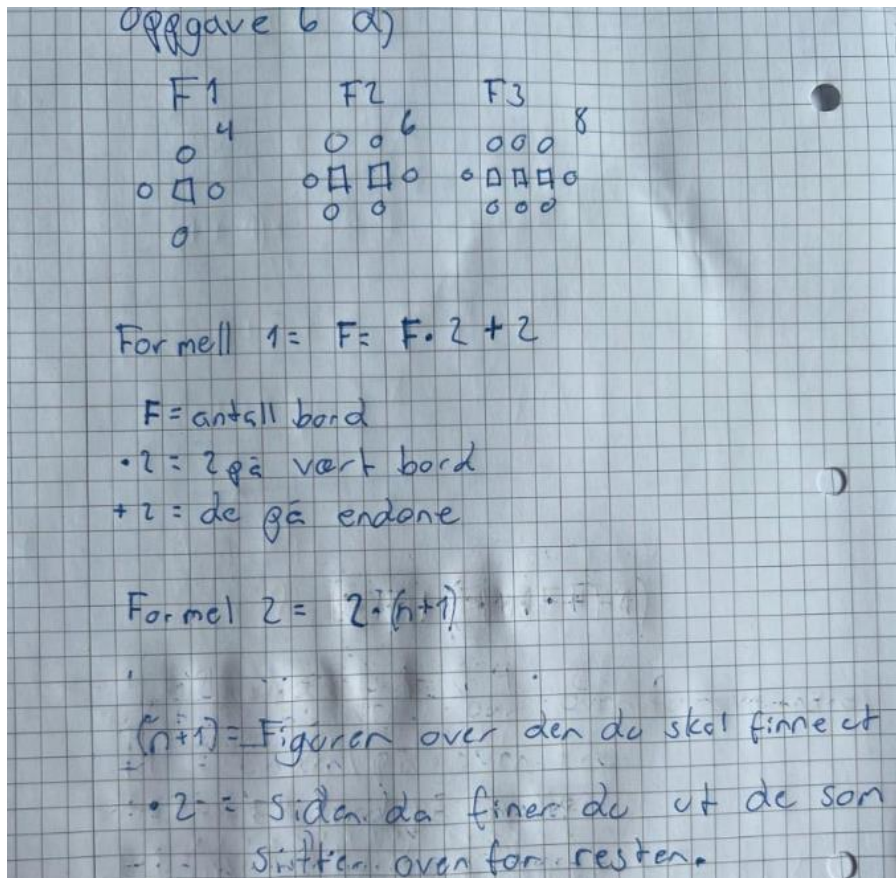 Oppgave 6 a)
F1 F2 F3
4 6 8
Formell 1= F= F·2+2
F= antall bord
·2 = 2 på vært bord
+2 = de på endone
Formel 2 = 2·(n+1)
(n+1)= Figuren over den du skal finne ut
·2 = siden da finer du ut de som
sitter oven for resten.